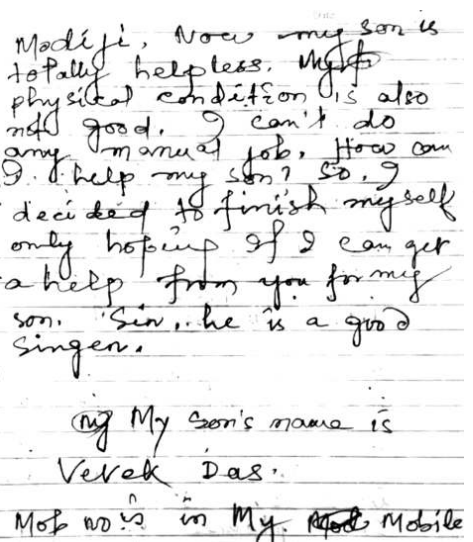 Modiji, Now my son is
totally helpless. My
physical condition is also
not good. I can't do
any manual job. How can
I help my son? So, I
decided to finish myself
only hoping If I can get
a help from you for my
son. Sir, he is a good
Singer.
My Son's name is
Vevek Das.
Mob no is in My Mobile